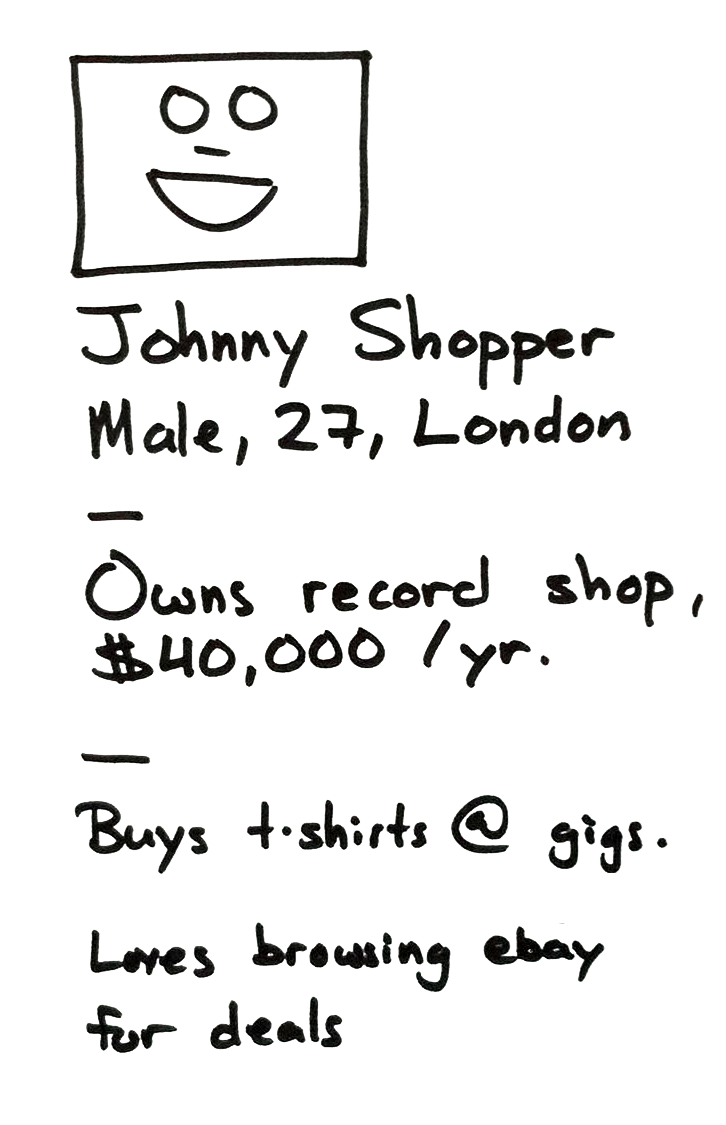 Johnny Shopper
Male, 27, London
—
Owns record shop,
$40,000 /yr.
—
Buys t-shirts @ gigs.
Loves browsing ebay
for deals